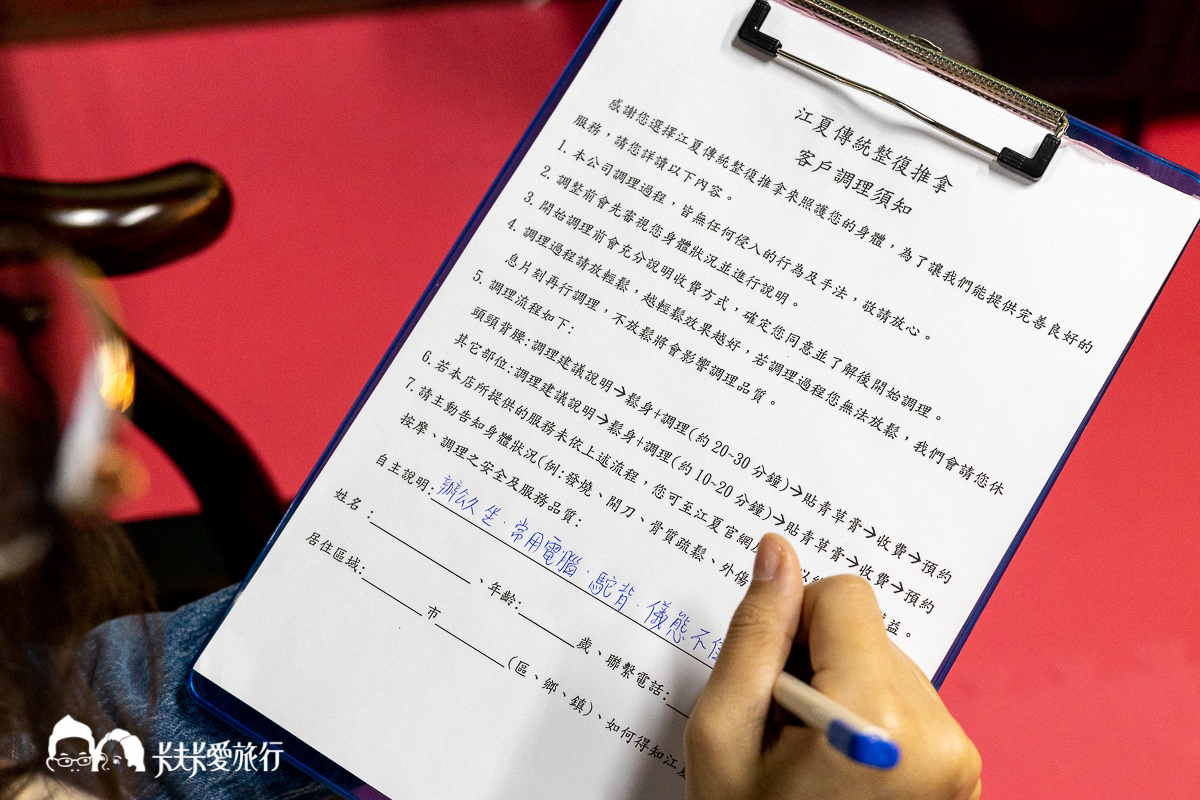 江夏傳統整復推拿
客戶調理須知
感謝您選擇江夏傳統整復推拿來照護您的身體，為了讓我們能提供完善良好的
服務，請您詳讀以下內容。
1. 本公司調理過程，皆無任何侵入的行為及手法，敬請放心。
2. 調整前會先審視您身體狀況並進行說明。
3. 開始調理前會充分說明收費方式，確定您同意並了解後開始調理。
4. 調理過程請放輕鬆，越輕鬆效果越好，若調理過程您無法放鬆，我們會請您休
息片刻再行調理，不放鬆將會影響調理品質。
5. 調理流程如下:
頭頸背腰:調理建議說明→鬆身+調理(約 20~30 分鐘)→貼青草膏→收費→預約
其它部位:調理建議說明→鬆身+調理(約 10~20 分鐘)→貼青草膏→收費→預約
6. 若本店所提供的服務未依上述流程，您可至江夏官網 益。
7. 請主動告知身體狀況(例:發燒、開刀、骨質疏鬆、外傷 以
按摩、調理之安全及服務品質:
自主說明:辦公久坐．常用電腦．駝背．儀態不佳
姓名：________、年齡:______歲、聯繫電話:
居住區域:______市______(區、鄉、鎮)、如何得知江夏
卡夫卡愛旅行